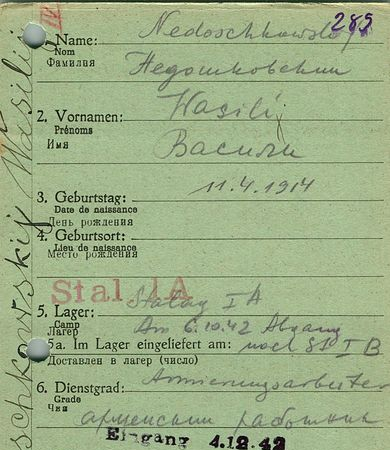 IV 285
1. Name: Nedoschkowskij
Nom
Фамилия Недошковский
2. Vornamen: Wasilij
Prénoms
Имя Василий
3. Geburtstag: 11.4.1914
Date de naissance
День рождения
4. Geburtsort:
Lieu de naissance
Место рождения
Stal IA
5. Lager: Stalag I A
Camp
Лагер Am 6.10.42 Abgang
5a. Im Lager eingeliefert am: nach St I B
Доставлен в лагер (число)
6. Dienstgrad: Armierungsarbeiter
Grade
Чин работник
Eingang 4.12.42
schkowskij Wasilij